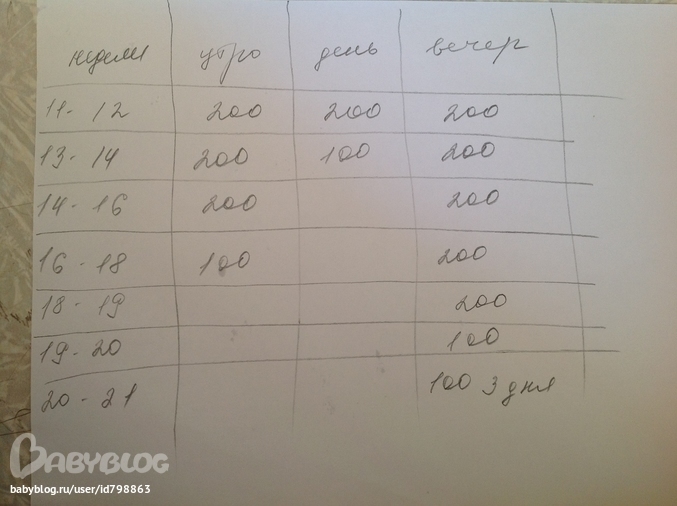 недели утро день вечер
11 - 12 200 200 200
13 - 14 200 100 200
14 - 16 200 200
16 - 18 100 200
18 - 19 200
19 - 20 100
20 - 21 100 3 дня
BABYBLOG
babyblog.ru/user/id798863